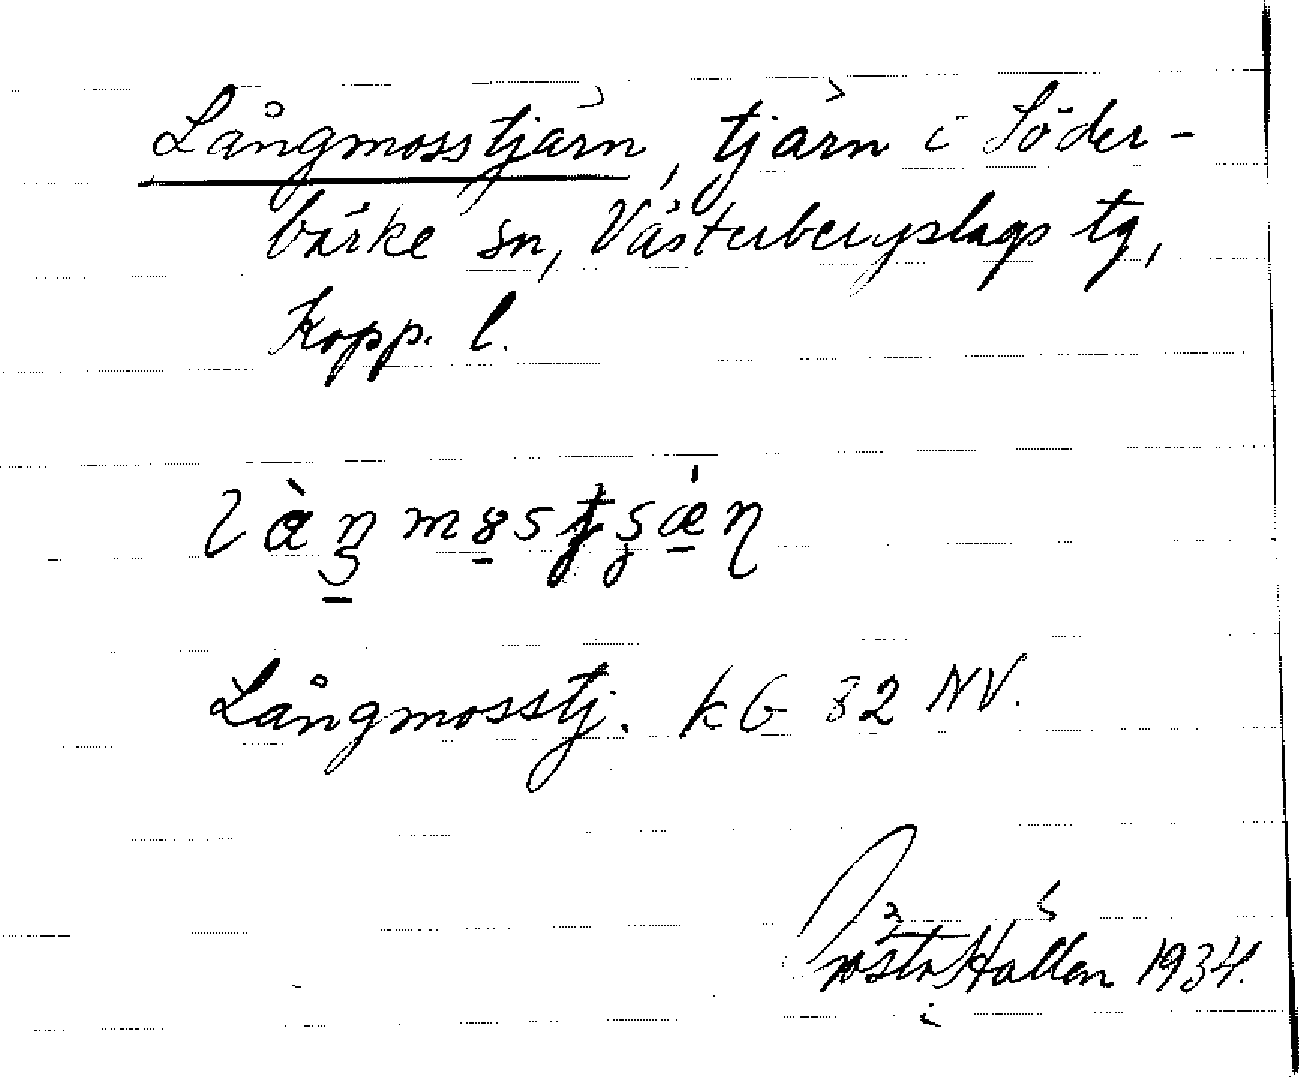 Långmosstjärn, tjärn i Söder-
bärke sn, Västerbergslags tg,
Kopp. l.
Långmosstj. KG 82 NV.
Gösta Hallén 1934.